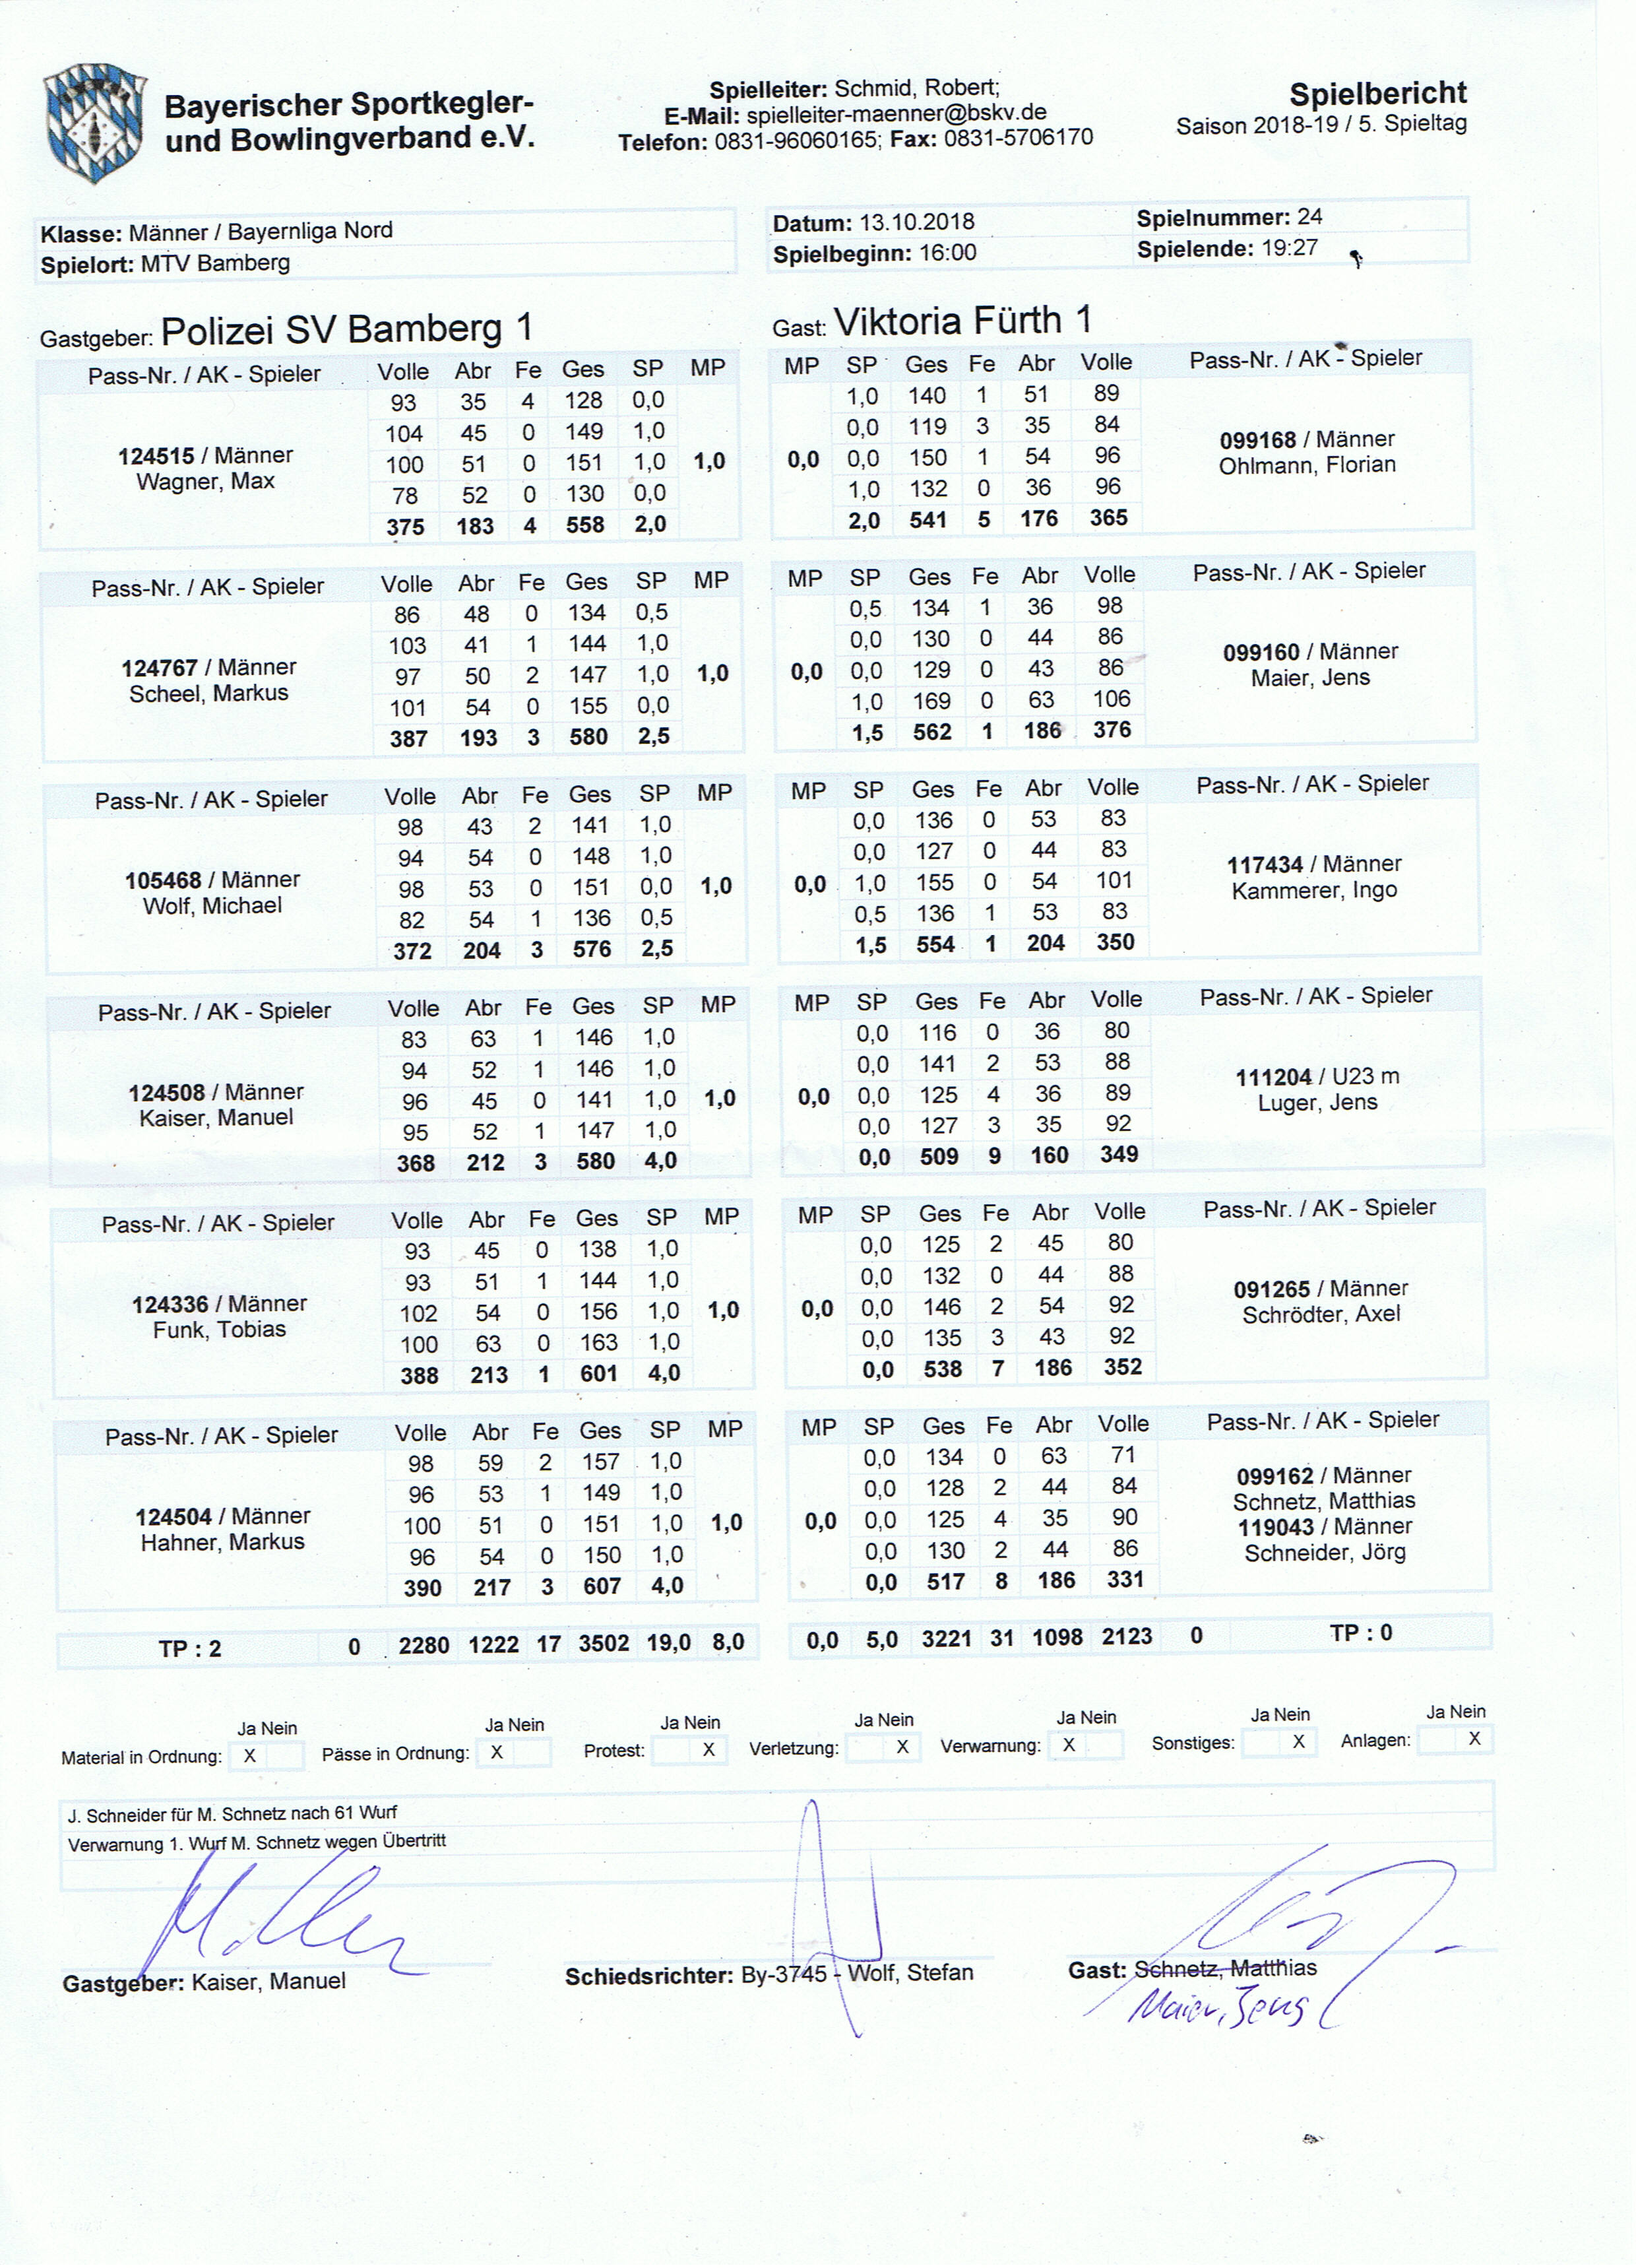 Bayerischer Sportkegler-
und Bowlingverband e.V.
Spielleiter: Schmid, Robert;
E-Mail: spielleiter-maenner@bskv.de
Telefon: 0831-96060165; Fax: 0831-5706170
Spielbericht
Saison 2018-19 / 5. Spieltag
Klasse: Männer / Bayernliga Nord
Spielort: MTV Bamberg
Datum: 13.10.2018 Spielnummer: 24
Spielbeginn: 16:00 Spielende: 19:27
Gastgeber: Polizei SV Bamberg 1
Gast: Viktoria Fürth 1
Pass-Nr. / AK - Spieler Volle Abr Fe Ges SP MP
93 35 4 128 0,0
104 45 0 149 1,0
124515 / Männer
Wagner, Max
100 51 0 151 1,0 1,0
78 52 0 130 0,0
375 183 4 558 2,0
MP SP Ges Fe Abr Volle Pass-Nr. / AK - Spieler
1,0 140 1 51 89
0,0 119 3 35 84
0,0 0,0 150 1 54 96
099168 / Männer
Ohlmann, Florian
1,0 132 0 36 96
2,0 541 5 176 365
Pass-Nr. / AK - Spieler Volle Abr Fe Ges SP MP
86 48 0 134 0,5
103 41 1 144 1,0
124767 / Männer
Scheel, Markus
97 50 2 147 1,0 1,0
101 54 0 155 0,0
387 193 3 580 2,5
MP SP Ges Fe Abr Volle Pass-Nr. / AK - Spieler
0,5 134 1 36 98
0,0 130 0 44 86
0,0 0,0 129 0 43 86
099160 / Männer
Maier, Jens
1,0 169 0 63 106
1,5 562 1 186 376
Pass-Nr. / AK - Spieler Volle Abr Fe Ges SP MP
98 43 2 141 1,0
94 54 0 148 1,0
105468 / Männer
Wolf, Michael
98 53 0 151 0,0 1,0
82 54 1 136 0,5
372 204 3 576 2,5
MP SP Ges Fe Abr Volle Pass-Nr. / AK - Spieler
0,0 136 0 53 83
0,0 127 0 44 83
0,0 1,0 155 0 54 101
117434 / Männer
Kammerer, Ingo
0,5 136 1 53 83
1,5 554 1 204 350
Pass-Nr. / AK - Spieler Volle Abr Fe Ges SP MP
83 63 1 146 1,0
94 52 1 146 1,0
124508 / Männer
Kaiser, Manuel
96 45 0 141 1,0 1,0
95 52 1 147 1,0
368 212 3 580 4,0
MP SP Ges Fe Abr Volle Pass-Nr. / AK - Spieler
0,0 116 0 36 80
0,0 141 2 53 88
0,0 0,0 125 4 36 89
111204 / U23 m
Luger, Jens
0,0 127 3 35 92
0,0 509 9 160 349
Pass-Nr. / AK - Spieler Volle Abr Fe Ges SP MP
93 45 0 138 1,0
93 51 1 144 1,0
124336 / Männer
Funk, Tobias
102 54 0 156 1,0 1,0
100 63 0 163 1,0
388 213 1 601 4,0
MP SP Ges Fe Abr Volle Pass-Nr. / AK - Spieler
0,0 125 2 45 80
0,0 132 0 44 88
0,0 0,0 146 2 54 92
091265 / Männer
Schrödter, Axel
0,0 135 3 43 92
0,0 538 7 186 352
Pass-Nr. / AK - Spieler Volle Abr Fe Ges SP MP
98 59 2 157 1,0
96 53 1 149 1,0
124504 / Männer
Hahner, Markus
100 51 0 151 1,0 1,0
96 54 0 150 1,0
390 217 3 607 4,0
MP SP Ges Fe Abr Volle Pass-Nr. / AK - Spieler
0,0 134 0 63 71
0,0 128 2 44 84
0,0 0,0 125 4 35 90
099162 / Männer
Schnetz, Matthias
119043 / Männer
Schneider, Jörg
0,0 130 2 44 86
0,0 517 8 186 331
TP : 2 0 2280 1222 17 3502 19,0 8,0
0,0 5,0 3221 31 1098 2123 0 TP : 0
Ja Nein Ja Nein Ja Nein Ja Nein Ja Nein Ja Nein Ja Nein
Material in Ordnung: X Pässe in Ordnung: X Protest: X Verletzung: X Verwarnung: X Sonstiges: X Anlagen: X
J. Schneider für M. Schnetz nach 61 Wurf
Verwarnung 1. Wurf M. Schnetz wegen Übertritt
Gastgeber: Kaiser, Manuel
Schiedsrichter: By-3745 - Wolf, Stefan
Gast: Schnetz, Matthias
Maier, Jens